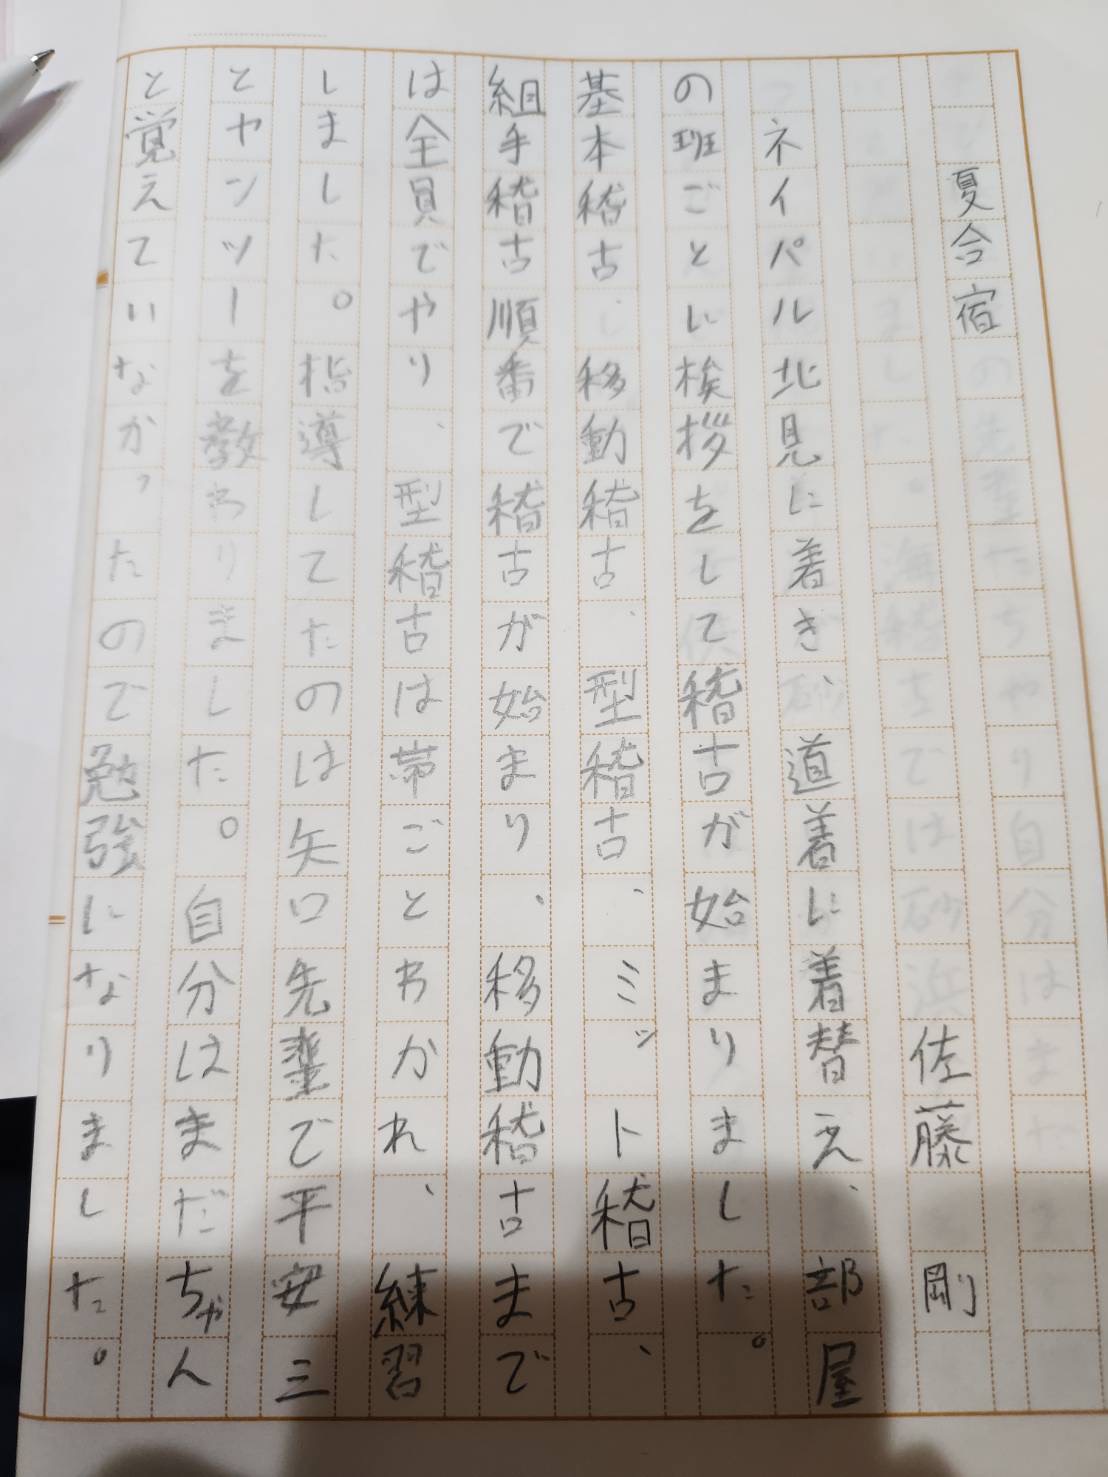 夏合宿
佐藤剛
ネイパル北見に着き、道着に着替え、部屋
の班ごとに挨拶をして稽古が始まりました。
基本稽古、移動稽古、型稽古、ミット稽古、
組手稽古順番で稽古が始まり、移動稽古まで
は全員でやり、型稽古は帯ごとわかれ、練習
しました。指導してたのは矢口先輩で平安三
とヤンツーを教わりました。自分はまだちゃん
と覚えていなかったので勉強になりました。